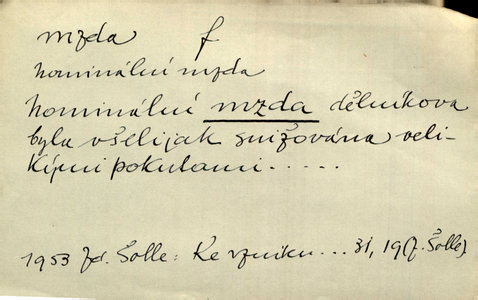 mzda f
nominální mzda
nominální mzda dělníkova
byla všelijak snižována veli-
kými pokutami.....
1953 Zd. Šolle: Ke vzniku...31, 19 (Z. Šolle)